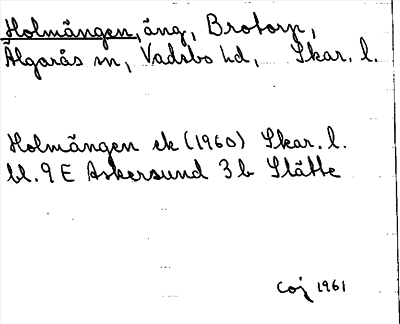 Holmängen, äng, Brotorp,
Älgarås sn, Vadsbo hd, Skar. l.
Holmängen ek (1960) Skar. l.
bl. 9 E Askersund 3 b Slätte
Coj 1961